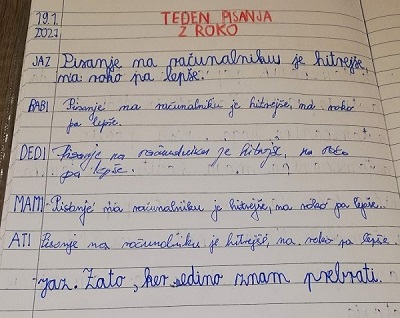 19.1. TEDEN PISANJA
2021 Z ROKO
JAZ Pisanje na računalniku je hitrejše,
na roko pa lepše.
BABI Pisanje na računalniku je hitrejše, na roko
pa lepše.
DEDI Pisanje na računalniku je hitrejše, na roko
pa lepše.
MAMI Pisanje na računalniku je hitrejše, na roko pa lepše.
ATI Pisanje na računalniku je hitrejše, na roko pa lepše.
jaz. Zato, ker edino znam prebrati.